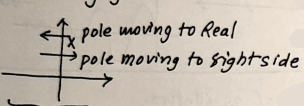 pole moving to Real
x
pole moving to rightside